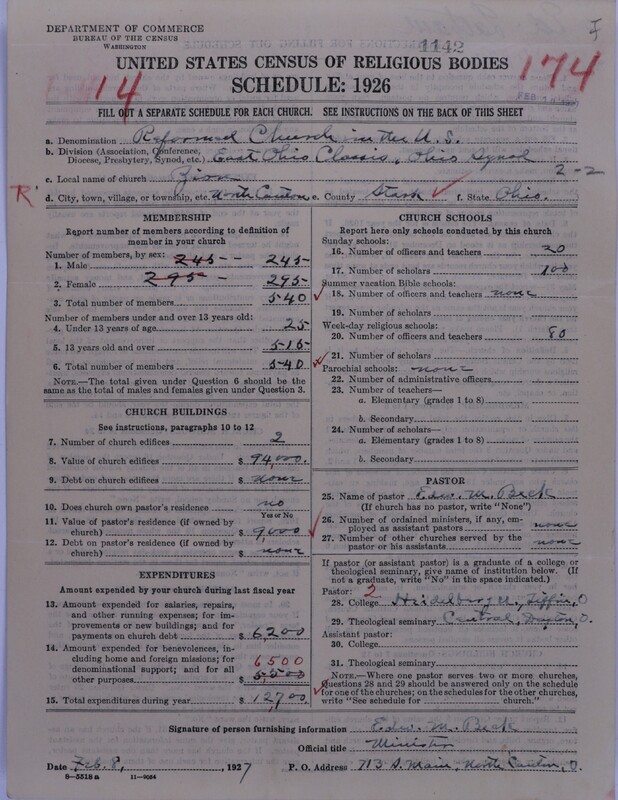 DEPARTMENT OF COMMERCE
BUREAU OF THE CENSUS
WASHINGTON
1142
I
UNITED STATES CENSUS OF RELIGIOUS BODIES
174
SCHEDULE: 1926
14
FILL OUT A SEPARATE SCHEDULE FOR EACH CHURCH. SEE INSTRUCTIONS ON THE BACK OF THIS SHEET
a. Denomination Reformed Church in the U.S.
b. Division (Association, Conference, Diocese, Presbytery, Synod, etc.) East Ohio Classis, Ohio Synod
2-2
c. Local name of church Zion
R
d. City, town, village, or township, etc. North Canton e. County Stark f. State Ohio.
MEMBERSHIP
Report number of members according to definition of
member in your church
Number of members, by sex:
1. Male 245 245
2. Female 295 295
3. Total number of members 540
Number of members under and over 13 years old:
4. Under 13 years of age 25
5. 13 years old and over 515
6. Total number of members 540
NOTE.—The total given under Question 6 should be the
same as the total of males and females given under Question 3.
CHURCH BUILDINGS
See instructions, paragraphs 10 to 12
7. Number of church edifices 2
8. Value of church edifices $ 94,000.
9. Debt on church edifices $ none
10. Does church own pastor's residence? no
Yes or No
11. Value of pastor's residence (if owned by
church) $ 9,000
12. Debt on pastor's residence (if owned by
church) $ none
EXPENDITURES
Amount expended by your church during last fiscal year
13. Amount expended for salaries, repairs,
and other running expenses; for im-
provements or new buildings; and for
payments on church debt $ 6200
14. Amount expended for benevolences, in-
cluding home and foreign missions; for
denominational support; and for all
other purposes $ 6500 5500
15. Total expenditures during year $ 12,700
CHURCH SCHOOLS
Report here only schools conducted by this church
Sunday schools:
16. Number of officers and teachers 20
17. Number of scholars
Summer vacation Bible schools:
18. Number of officers and teachers none
19. Number of scholars
Week-day religious schools:
20. Number of officers and teachers 80
21. Number of scholars
Parochial schools: none
22. Number of administrative officers
23. Number of teachers—
a. Elementary (grades 1 to 8)
b. Secondary
24. Number of scholars—
a. Elementary (grades 1 to 8)
b. Secondary
PASTOR
25. Name of pastor Edw. M. Beck
(If church has no pastor, write "None")
26. Number of ordained ministers, if any, em-
ployed as assistant pastors none
27. Number of other churches served by the
pastor or his assistants none
If pastor (or assistant pastor) is a graduate of a college or
theological seminary, give name of institution below. (If
not a graduate, write "No" in the space indicated.)
Pastor: 2
28. College Heidelberg U., Tiffin, O
29. Theological seminary Central, Dayton, O.
Assistant pastor:
30. College
31. Theological seminary
NOTE.—Where one pastor serves two or more churches,
Questions 28 and 29 should be answered only on the schedule
for one of the churches; on the schedules for the other churches,
write "See schedule for church."
Signature of person furnishing information Edw. M. Beck
Official title Minister
Date Feb. 8, 1927 P. O. Address 713 S. Main, North Canton, O.
8-5518 a 11-9084